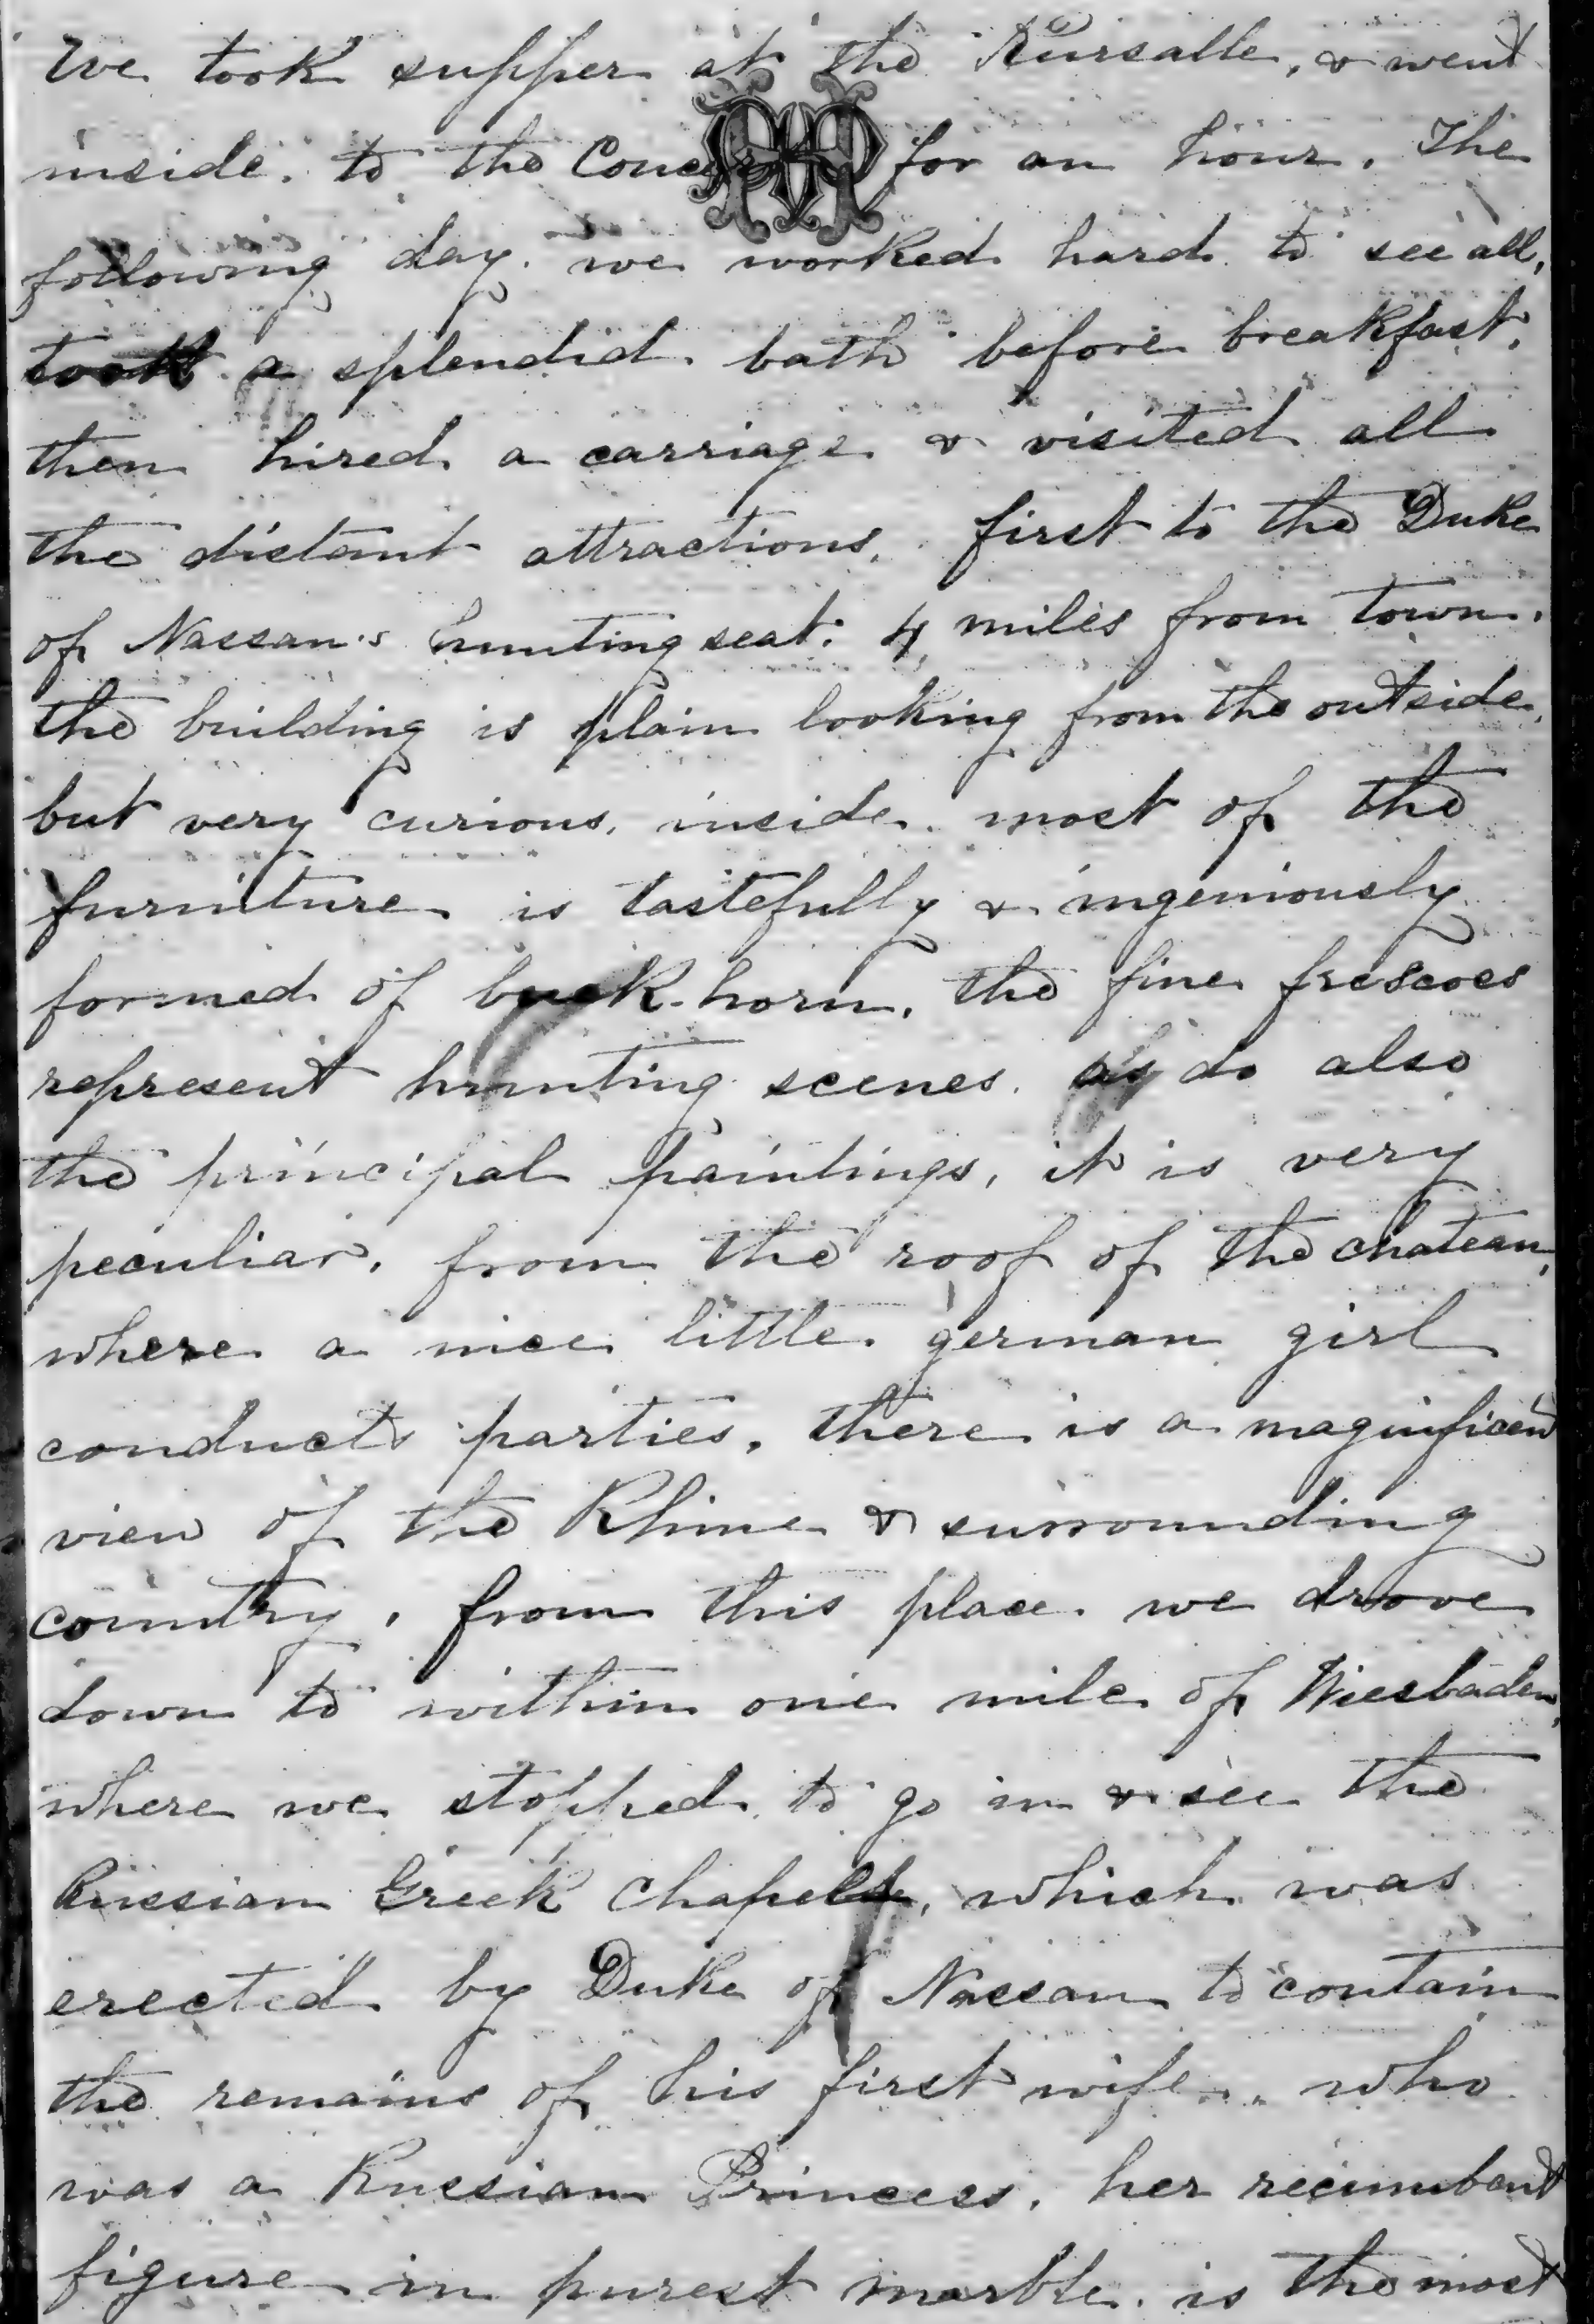 We took supper at the Kursalle, & went
inside. to the Concert for an hour. The
following day. we worked hard to see all,
took a splendid. bath before breakfast,
then hired a carriage & visited all
the distant attractions, first to the Duke
of Nassau's hunting seat. 4 miles from town.
the building is plain looking from the outside,
but very curious, inside. most of the
furniture is tastefully & ingeniously
formed of buck-horn, the fine frescoes
represent hunting scenes. as do also
the principal paintings, it is very
peculiar, from the roof of the chateau,
where a nice little german girl
conducts parties, there is a magnificent
view of the Rhine & surrounding
country, from this place. we drove
down to within one mile of Wiesbaden,
where we stopped to go in & see the
Russian Greek Chapel, which was
erected by Duke of Nassau to contain
the remains of his first wife, who
was a Russian Princess, her recumbant
figure in purest marble. is the most